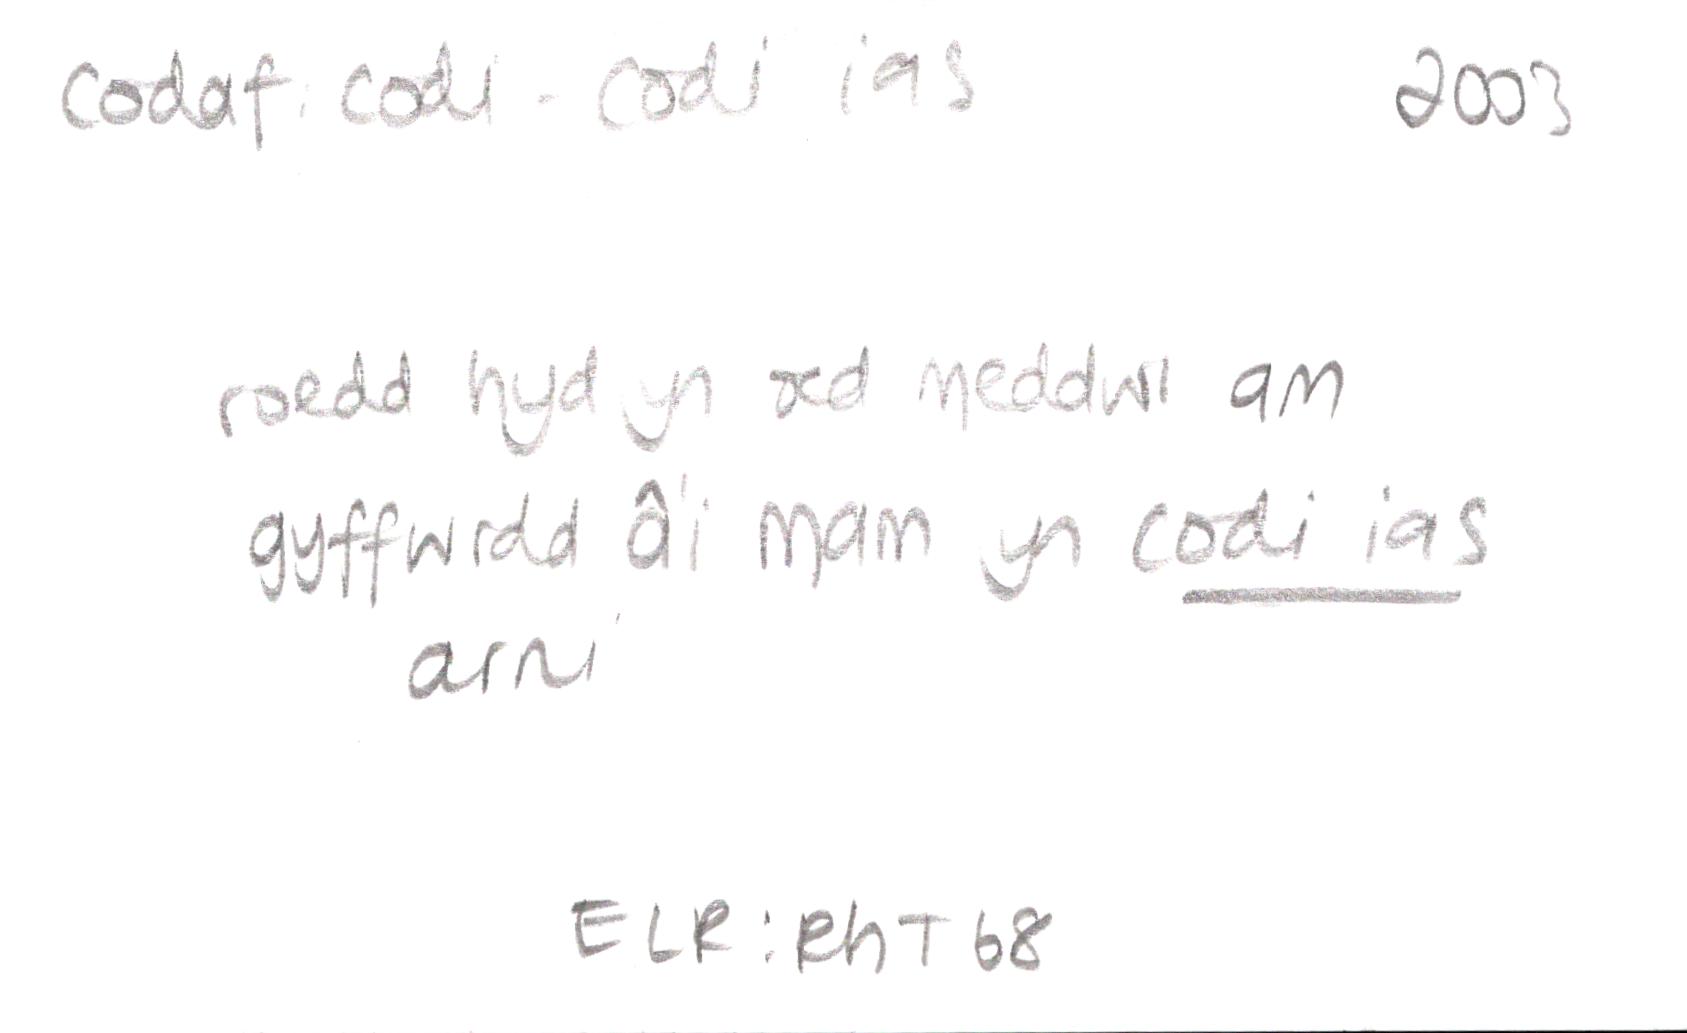 codaf: codi - codi ias 2003
roedd hyd yn oed meddwl am
gyffwrdd â'i mam yn codi ias
arni
ELR: RhT 68